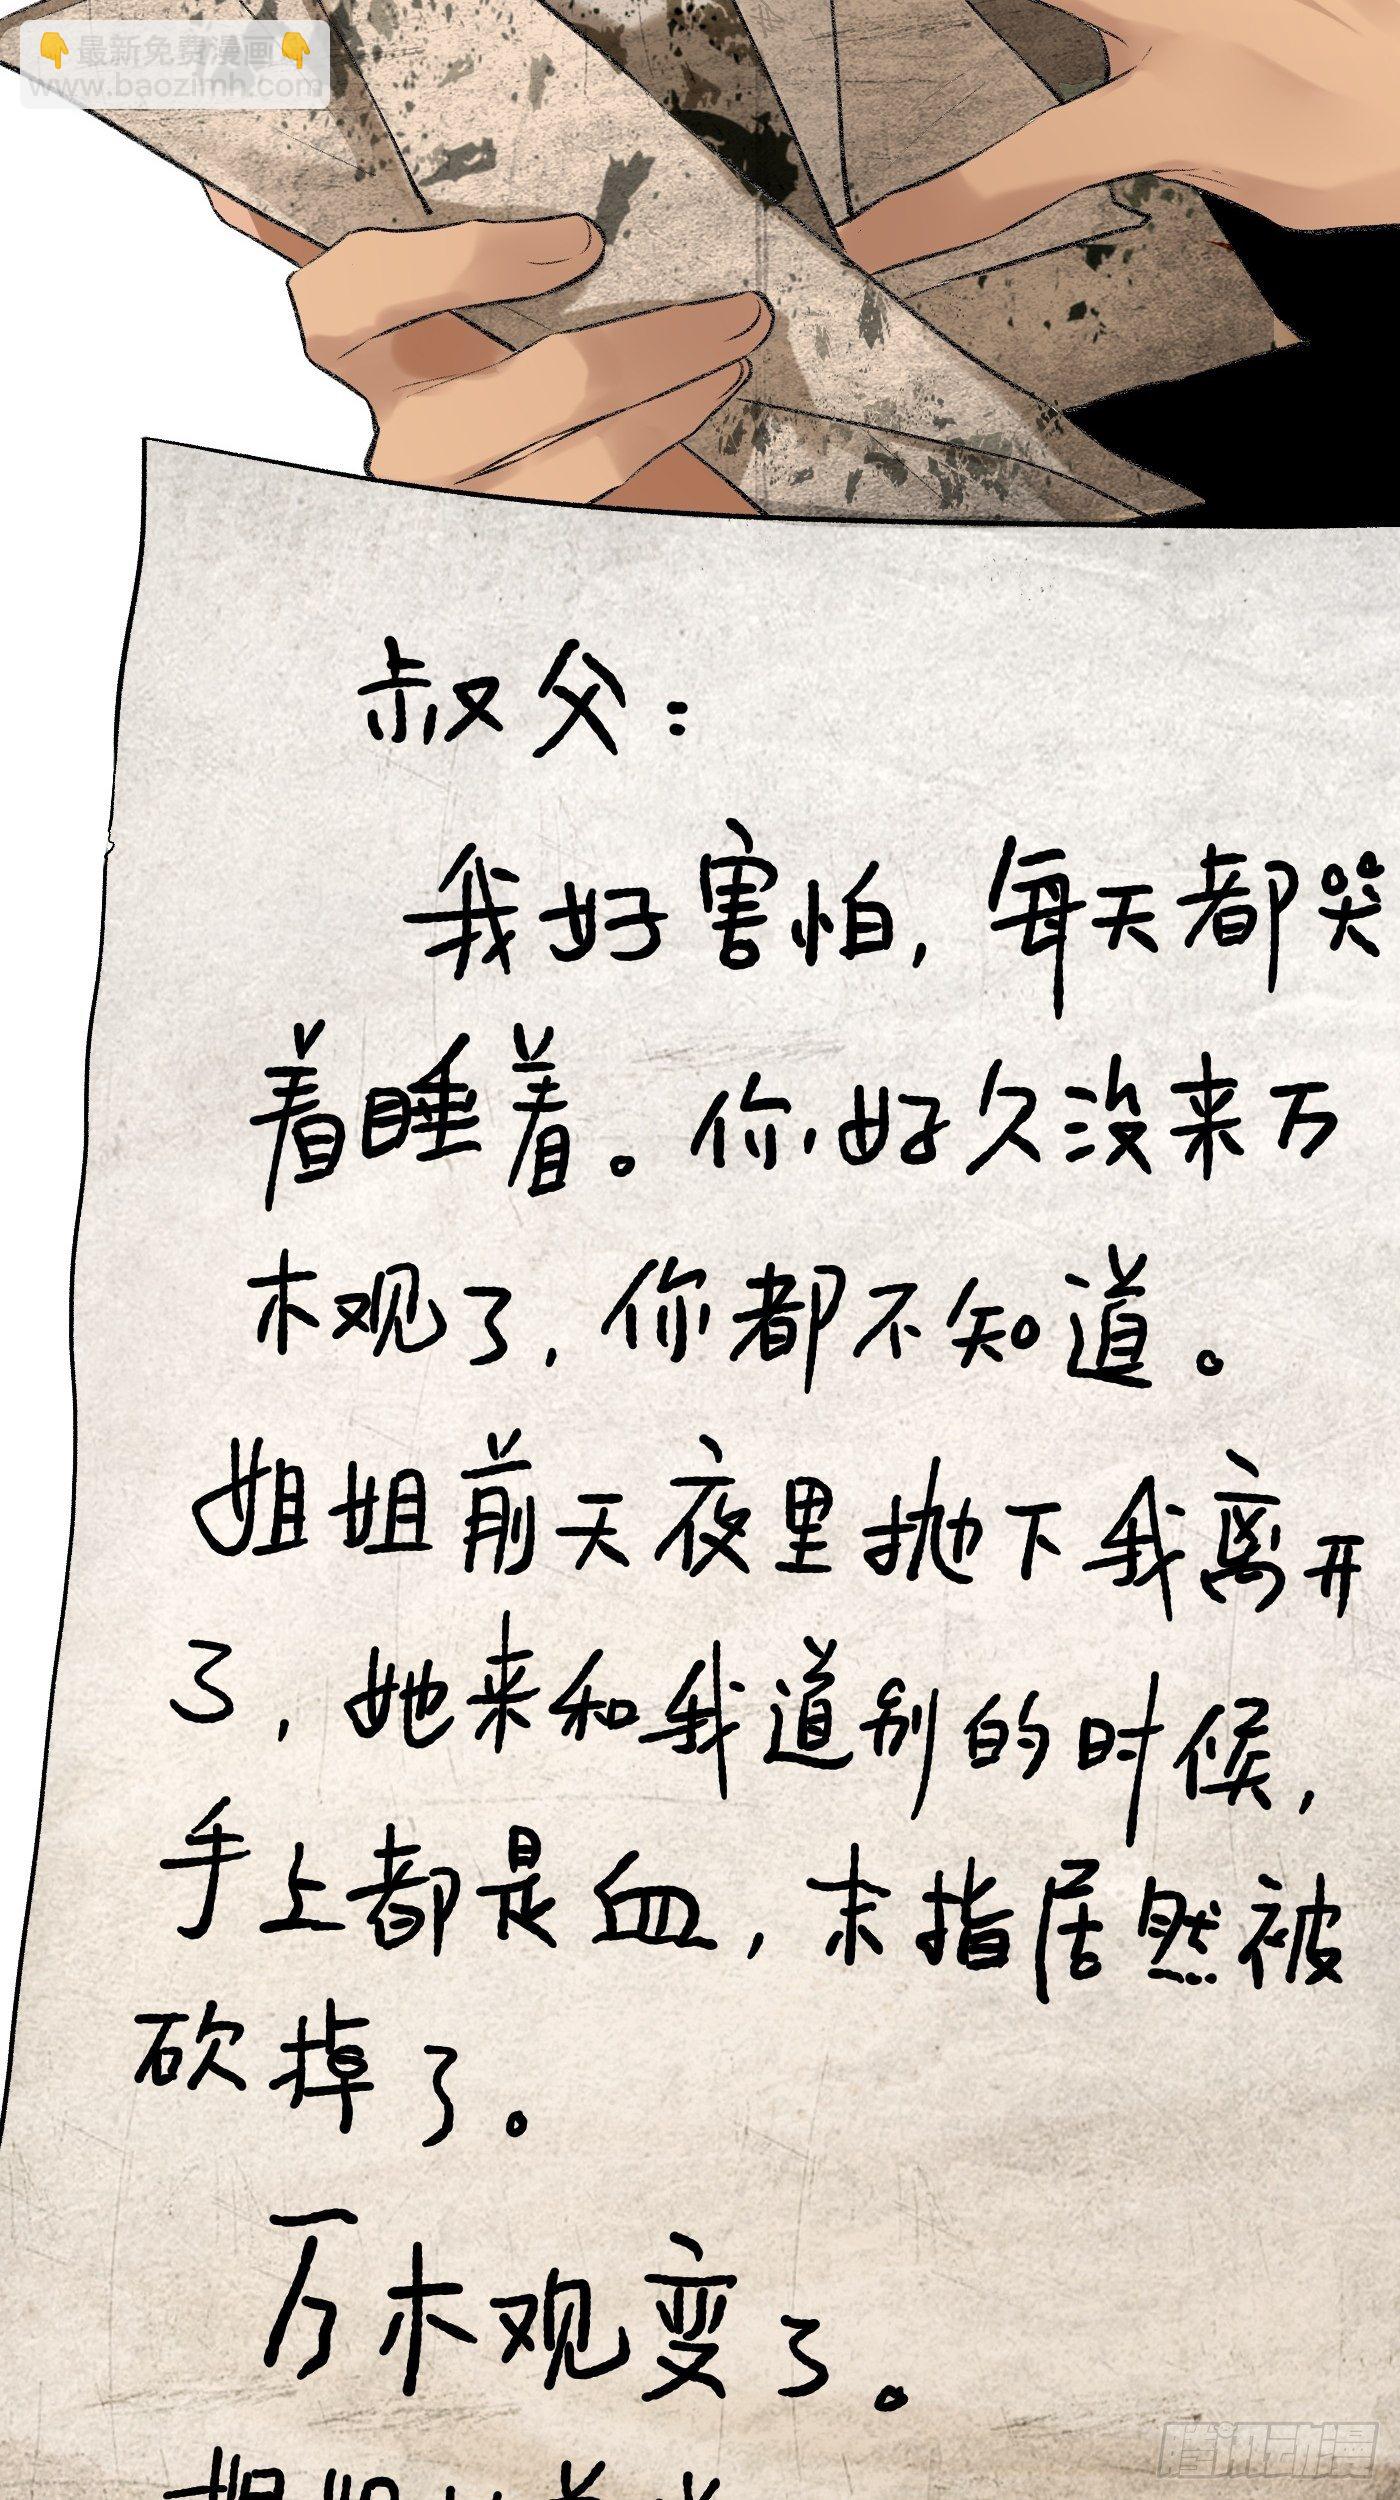 👇最新免费漫画👇
www.baozimh.com
叔父：
我好害怕，每天都哭
着睡着。你好久没来万
木观了，你都不知道。
姐姐前天夜里抛下我离开
了，她来和我道别的时候，
手上都是血，末指居然被
砍掉了。
万木观变了。
腾讯动漫